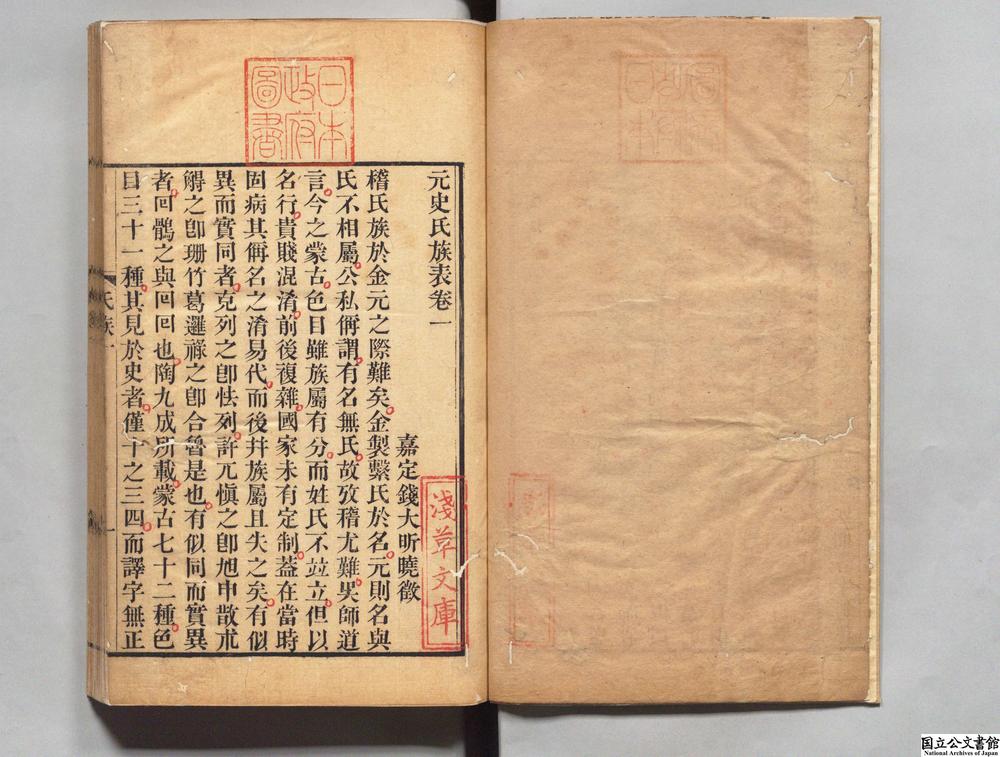 日本
政府
圖書
元史氏族表卷一
嘉定錢大昕曉徵
淺草文庫
稽氏族於金元之際難矣金製繫氏於名元則名與
氏不相屬公私侢謂有名無氏故攷稽尤難吳師道
言今之蒙古色目雖族屬有分而姓氏不竝立但以
名行貴賤混淆前後複雜國家未有定制葢在當時
固病其侢名之淆易代而後幷族屬且失之矣有似
異而實同者克列之卽怯列許兀愼之卽旭申散朮
䚟之卽珊竹葛邏祿之卽合魯是也有似同而實異
者回鶻之與回回也陶九成所載蒙古七十二種色
目三十一種其見於史者僅十之三四而譯字無正
氏族一
一
国立公文書館
National Archives of Japan